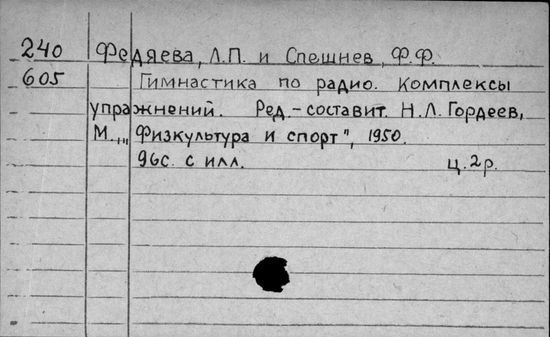 240 Федяева, Л.П. и Спешнев, Ф.Ф.
605 Гимнастика по радио. Комплексы
упражнений. Ред.-составит. Н.Л. Гордеев,
М., „Физкультура и спорт", 1950.
96с. с илл. ц. 2р.